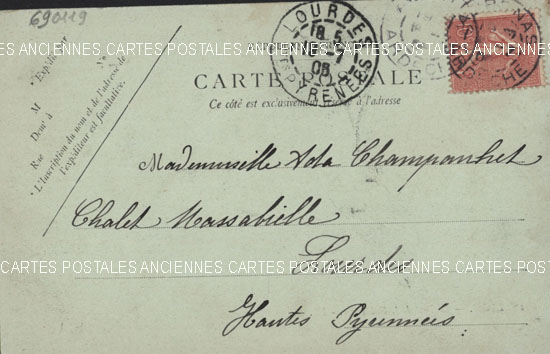 690119
LOURDES
18 5
05
HTES PYRENEES
CARTES POSTALES ANCIENNES CARTES POSTALES ANCIENNES CARTES POSTALES ANCIENNES
CARTE POSTALE
Ce côté est exclusivement réservé à l'adresse
* Expéditeur
M
Dem^t à
Rue
* L'inscription du nom et de l'adresse de
l'expéditeur est facultative.
Mademoiselle Ada Champanhet
Chalet Massabielle
Lourdes
CARTES POSTALES ANCIENNES CARTES POSTALES ANCIENNES CARTES POSTALES ANCIENNES
Hautes Pyrennées